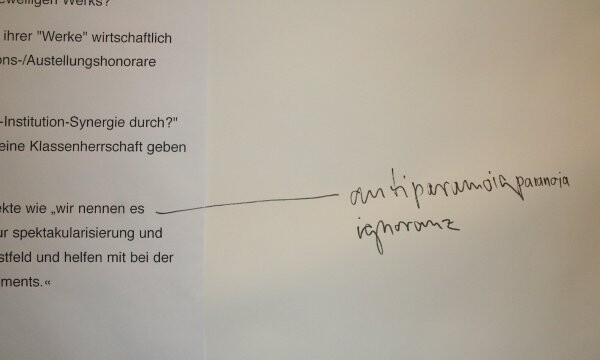 eweiligen Werks?
ihrer "Werke" wirtschaftlich
ons-/Austellungshonorare
-Institution-Synergie durch?"
eine Klassenherrschaft geben
ekte wie „wir nennen es
ur spektakularisierung und
stfeld und helfen mit bei der
ments.«
antiparanoia paranoia
ignoranz